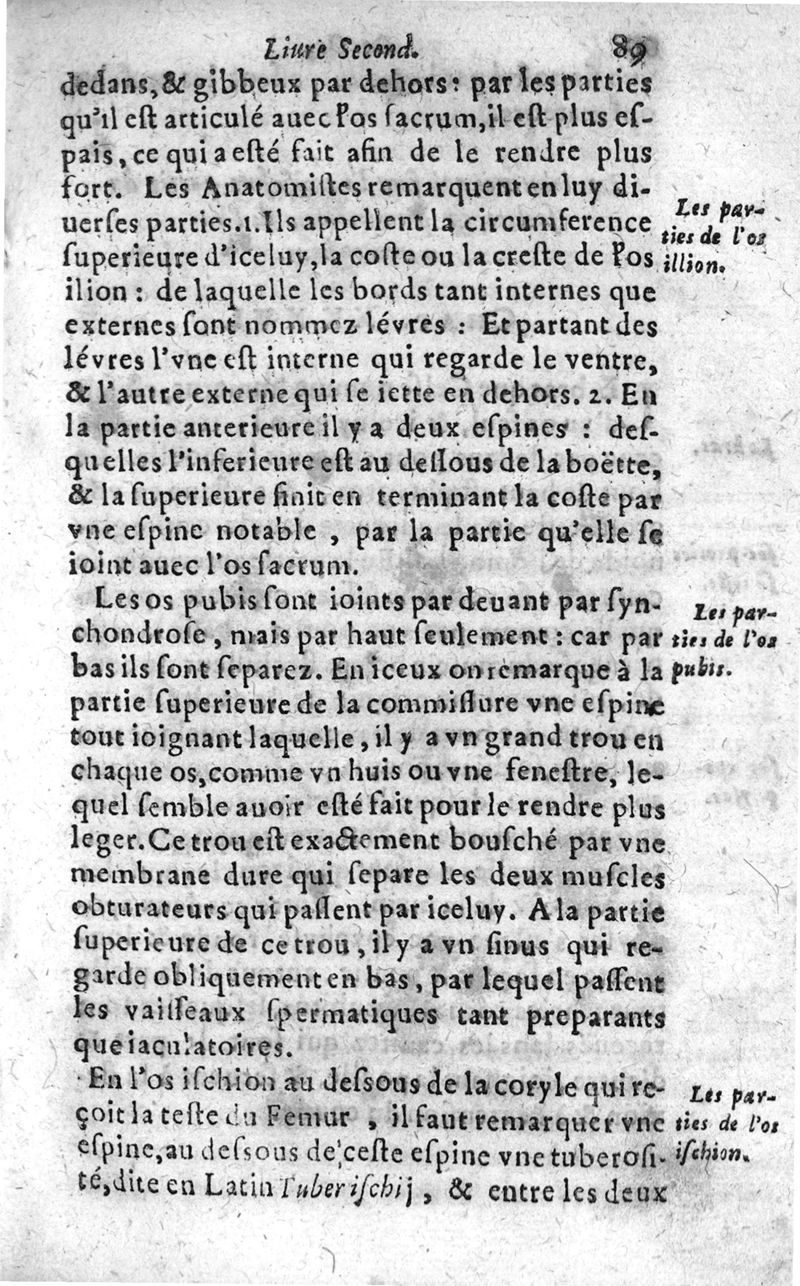 Liure Second. 89
dedans, & gibbeux par dehors: par les parties
qu'il est articulé auec l'os sacrum, il est plus es-
pais, ce qui a esté fait afin de le rendre plus
fort. Les Anatomistes remarquent en luy di-
uerses parties. 1. Ils appellent la circumference
superieure d'iceluy, la coste ou la creste de l'os
ilion : de laquelle les bords tant internes que
externes sont nommez lévres : Et partant des
lévres l'vne est interne qui regarde le ventre,
& l'autre externe qui se iette en dehors. 2. En
la partie anterieure il y a deux espines : des-
quelles l'inferieure est au dessous de la boëtte,
& la superieure finit en terminant la coste par
vne espine notable, par la partie qu'elle se
ioint auec l'os sacrum.
Les par-
ties de l'os
illion.
Les os pubis sont ioints par deuant par syn-
chondrose, mais par haut seulement : car par
bas ils sont separez. En iceux on remarque à la
partie superieure de la commissure vne espine
tout ioignant laquelle, il y a vn grand trou en
chaque os, comme vn huis ou vne fenestre, le-
quel semble auoir esté fait pour le rendre plus
leger. Ce trou est exactement bousché par vne
membrane dure qui separe les deux muscles
obturateurs qui passent par iceluy. A la partie
superieure de ce trou, il y a vn sinus qui re-
garde obliquement en bas, par lequel passent
les vaisseaux spermatiques tant preparants
que iaculatoires.
Les par-
ties de l'os
pubis.
En l'os ischion au dessous de la coryle qui re-
çoit la teste du Femur, il faut remarquer vne
espine, au dessous de ceste espine vne tuberosi-
té, dite en Latin Tuber ischij, & entre les deux
Les par-
ties de l'os
ischion.